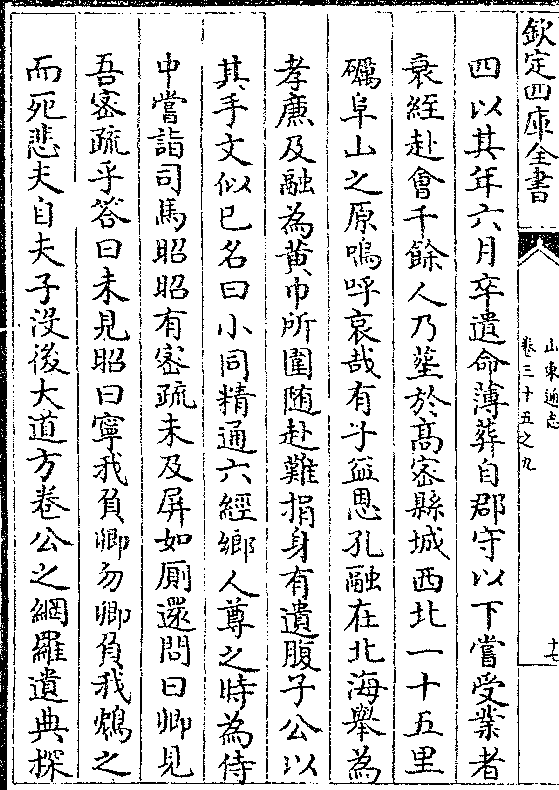 欽定四庫全書
山東通志
卷三十五之九
十七
四以其年六月卒遺命薄葬自郡守以下嘗受業者
衰絰赴會千餘人乃塟於高密縣城西北一十五里
礪阜山之原嗚呼哀哉有子益恩孔融在北海舉為
孝廉及融為黄巾所圍随赴難捐身有遺腹子公以
其手文似已名曰小同精通六經鄉人尊之時為侍
中嘗詣司馬昭昭有密疏未及屏如厠還問曰卿見
吾密疏乎答曰未見昭曰寧我負卿勿卿負我鴆之
而死悲夫自夫子没後大道方卷公之網羅遺典探